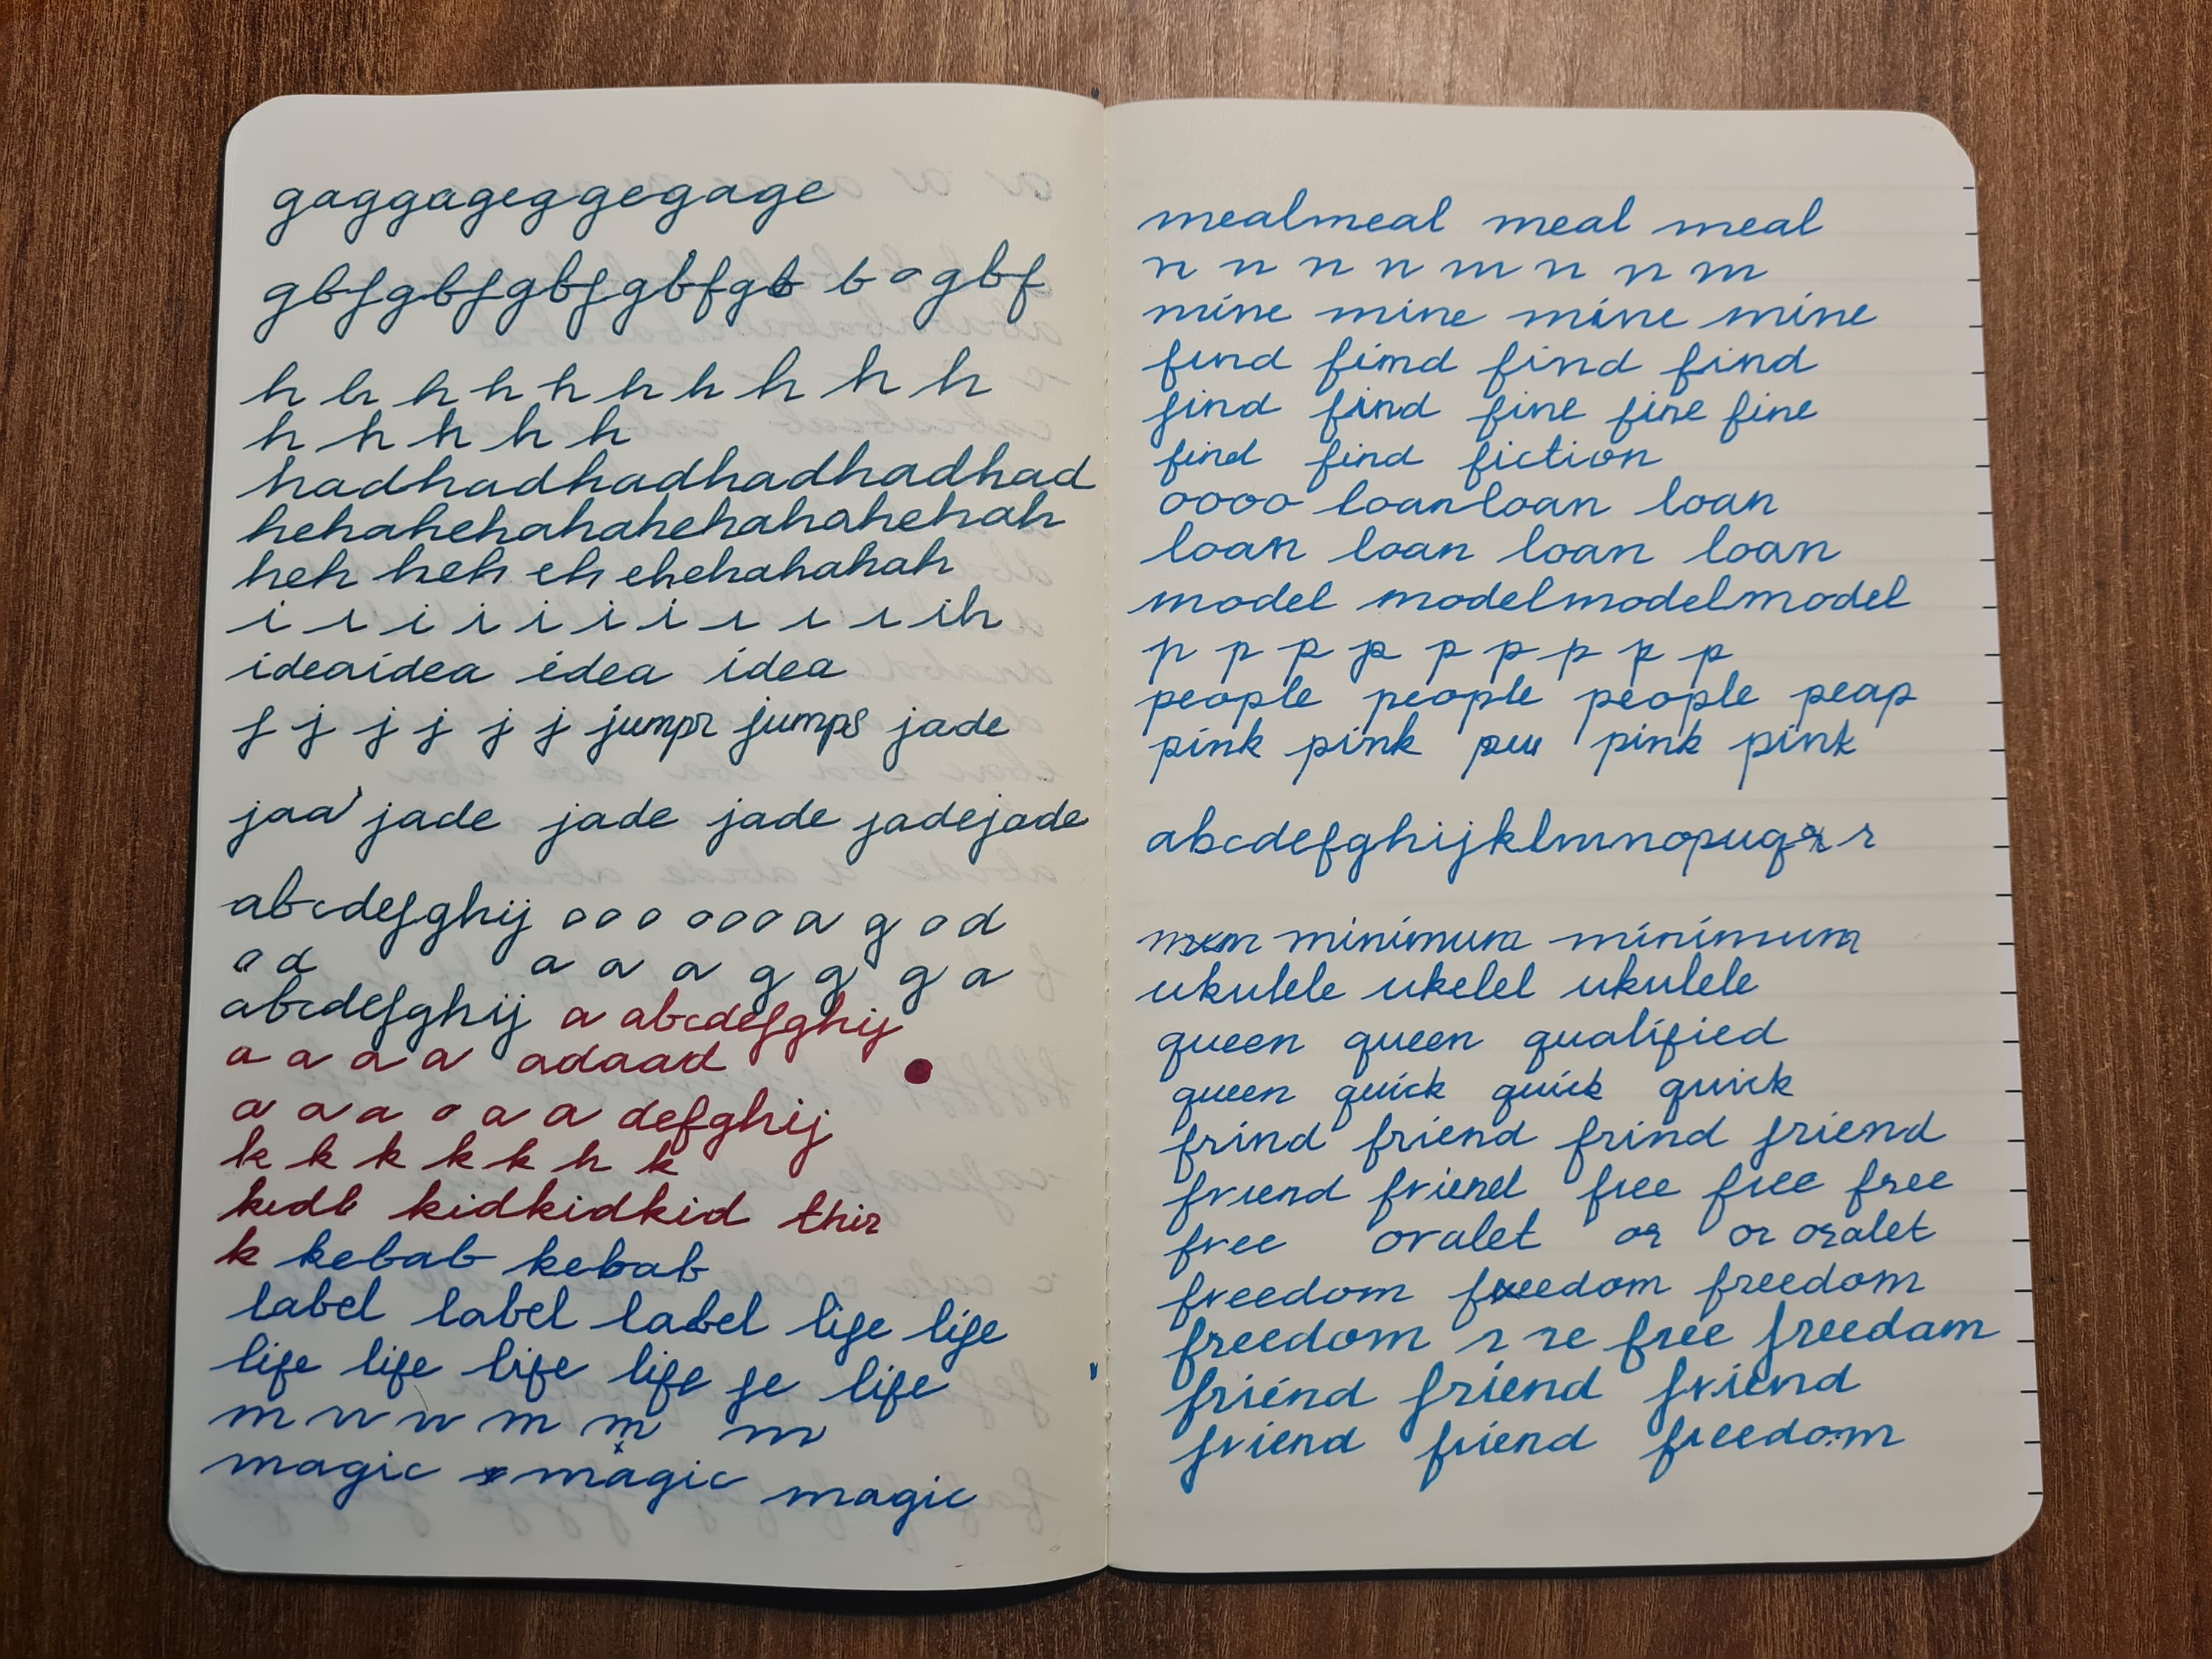 gaggageggegage
gbfgbfgbfgbfgb b o gbf
h h h h h h h h h h
h h h h h
hadhadhadhadhadhad
hehahehahahehahahahehah
heh heh eh ehehahahah
i i i i i i i i i i ih
ideaidea idea idea
j j j j j j jumpr jumps jade
jaa jade jade jade jadejade
abcdefghij o o o o o o a g o d
o a a a a g g g a
abcdefghij a abcdefghij
a a a a adaad
a a a o a a defghij
k k k k k h k
kidk kidkidkid this
k kebab kebab
label label label life life
life life life life fe life
m n n m m m
magic magic magic
mealmeal meal meal
n n n n m n n m
mine mine mine mine
find fimd find find
find find fine fine fine
find find fiction
oooo loanloan loan
loan loan loan loan
model modelmodelmodel
p p p p p p p p p
people people people peap
pink pink pink pink
abcdefghijklmnopuqr r
minimum minimum
ukulele ukelel ukulele
queen queen qualified
queen quick quick quick
frind friend frind friend
friend friend free free free
free ovalet or or oralet
freedom freedom freedom
freedom r re free freedam
friend friend friend
friend friend freedom